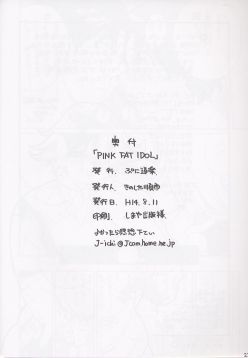 奥付
「PINK FAT IDOL」
発行. ぷに通業
発行人. きのした順市
発行日. H14.8.11
印刷. しまや出版様
よかったら感想下さい
J-ichi@Jcom.home.ne.jp